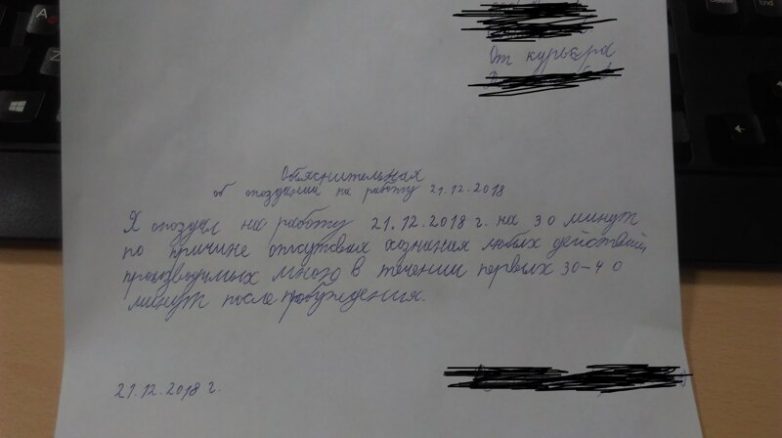 От курьера
Обяснительная
об опоздании на работу 21.12.2018
Я опоздал на работу 21.12.2018 г. на 30 минут
по причине отсутвия любых действий,
производимых мною в течении первых 30-40
минут после пробуждения.
21.12.2018 г.